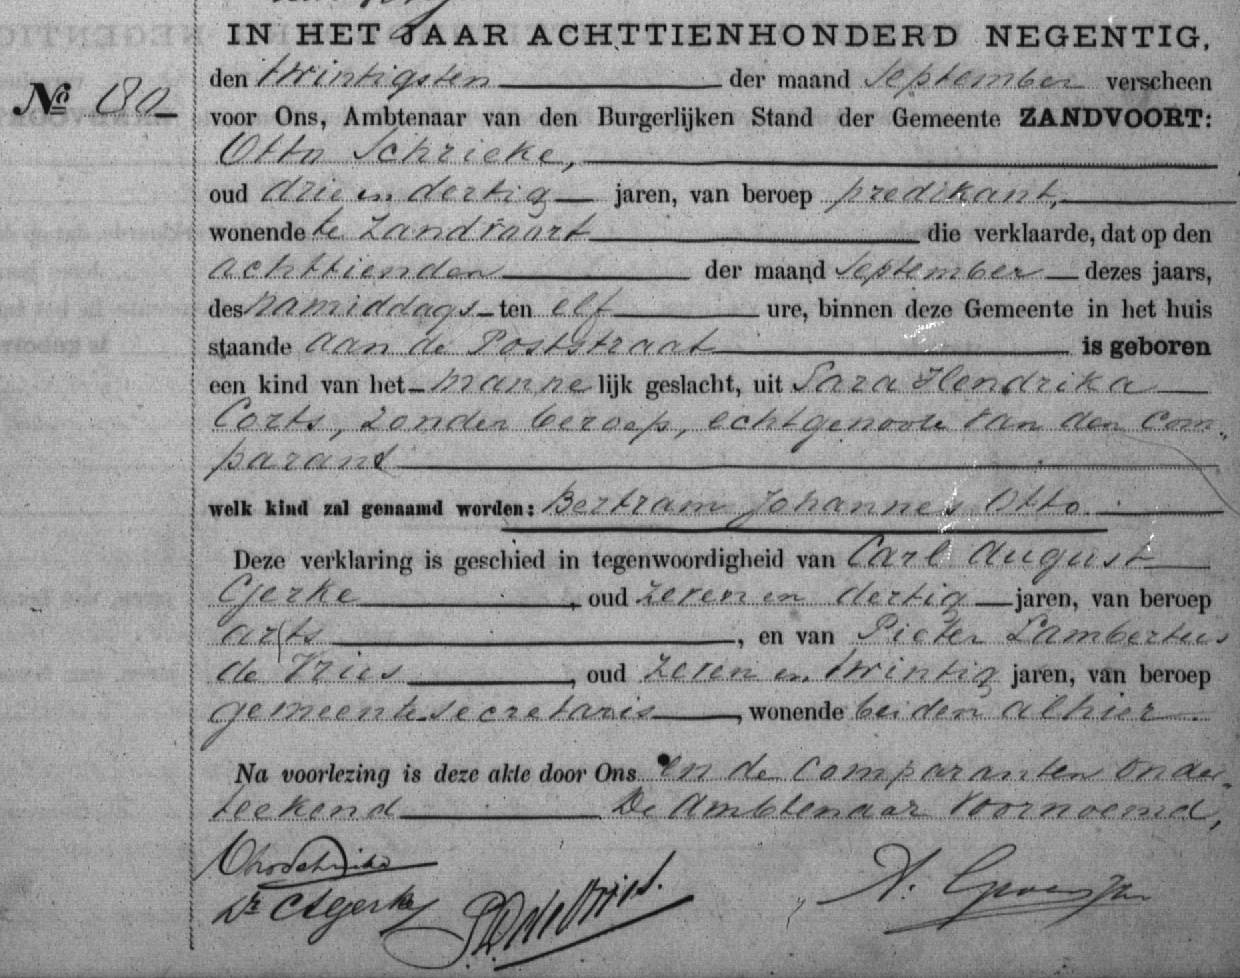 IN HET JAAR ACHTTIENHONDERD NEGENTIG,
den twintigsten der maand September verscheen
No 130
voor Ons, Ambtenaar van den Burgerlijken Stand der Gemeente ZANDVOORT:
Otto Schrieke,
oud drie en dertig jaren, van beroep predikant,
wonende te Zandvoort die verklaarde, dat op den
achttienden der maand September dezes jaars,
des namiddags ten elf ure, binnen deze Gemeente in het huis
staande aan de Poststraat is geboren
een kind van het manne lijk geslacht, uit Sara Hendrika
Corts, zonder beroep, echtgenoote van den com-
parant
welk kind zal genaamd worden: Bertram Johannes Otto.
Deze verklaring is geschied in tegenwoordigheid van Carl August
Gerke, oud zeven en dertig jaren, van beroep
arts, en van Pieter Lambertus
de Vries, oud zeven en twintig jaren, van beroep
gemeentesecretaris, wonende beiden alhier
Na voorlezing is deze akte door Ons en de comparanten onder-
teekend De Ambtenaar voornoemd,
OttoSchrieke
Dr CAGerke
PLdeVries.